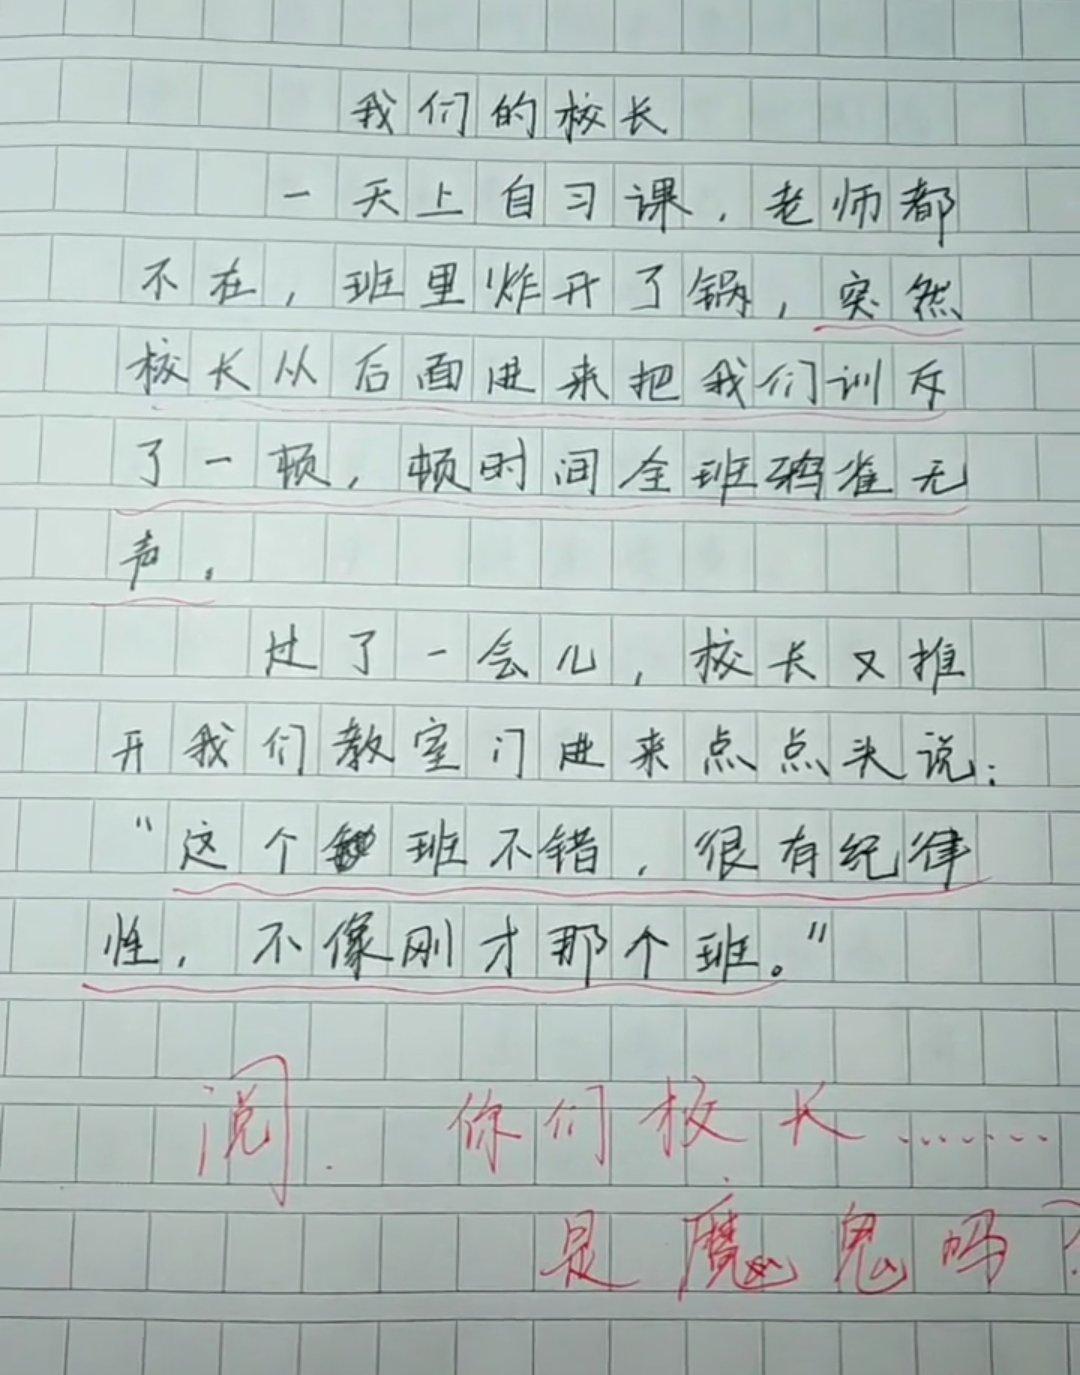 我们的校长
一天上自习课，老师都
不在，班里炸开了锅，突然
校长从后面进来把我们训斥
了一顿，顿时间全班鸦雀无
声。
过了一会儿，校长又推
开我们教室门进来点点头说：
“这个班不错，很有纪律
性，不像刚才那个班。”
阅. 你们校长.......
是魔鬼吗?